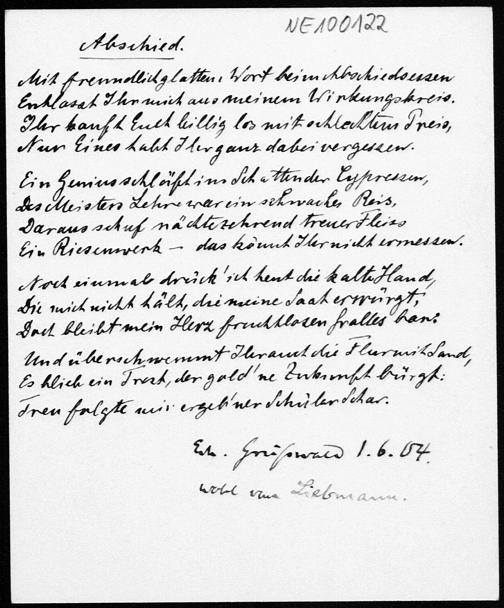 NE100122
Abschied.
Mit freundlichglattem Wort beim Abschiedsessen
Entlasst Ihr mich aus meinem Wirkungskreis.
Ihr kauft Euch billig los mit schlechtem Preis,
Nur Eines habt Ihr ganz dabei vergessen.
Ein Genius schläft im Schatten der Cypressen,
Des Meisters Lehre war ein schwaches Reis,
Daraus schuf nächtezehrend treuer Fleiss
Ein Riesenwerk – das könnt Ihr nicht ermessen.
Noch einmal drück' ich heut die kalte Hand,
Die mich nicht hält, die meine Saat erwürgt,
Doch bleibt mein Herz fruchtlosen Grolles bar:
Und überschwemmt Ihr auch die Flur mit Sand,
Es blieb ein Trost, der gold'ne Zukunft bürgt:
Treu folgte mir ergeb'ner Schüler Schar.
1.6.04.
wohl von Liebmann.